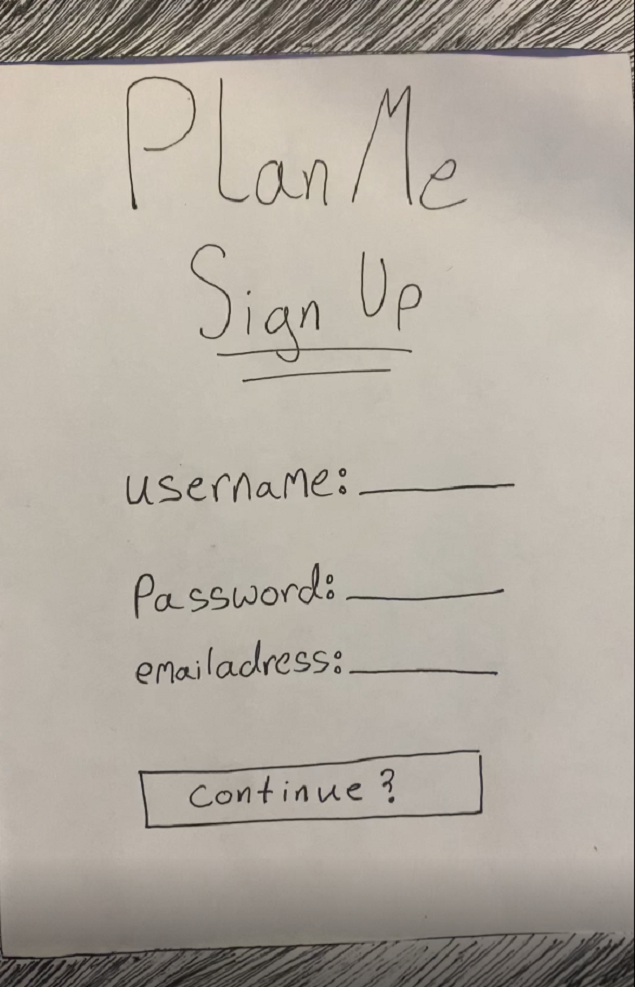 Plan Me
Sign Up
username:
Password:
emailadress:
continue?